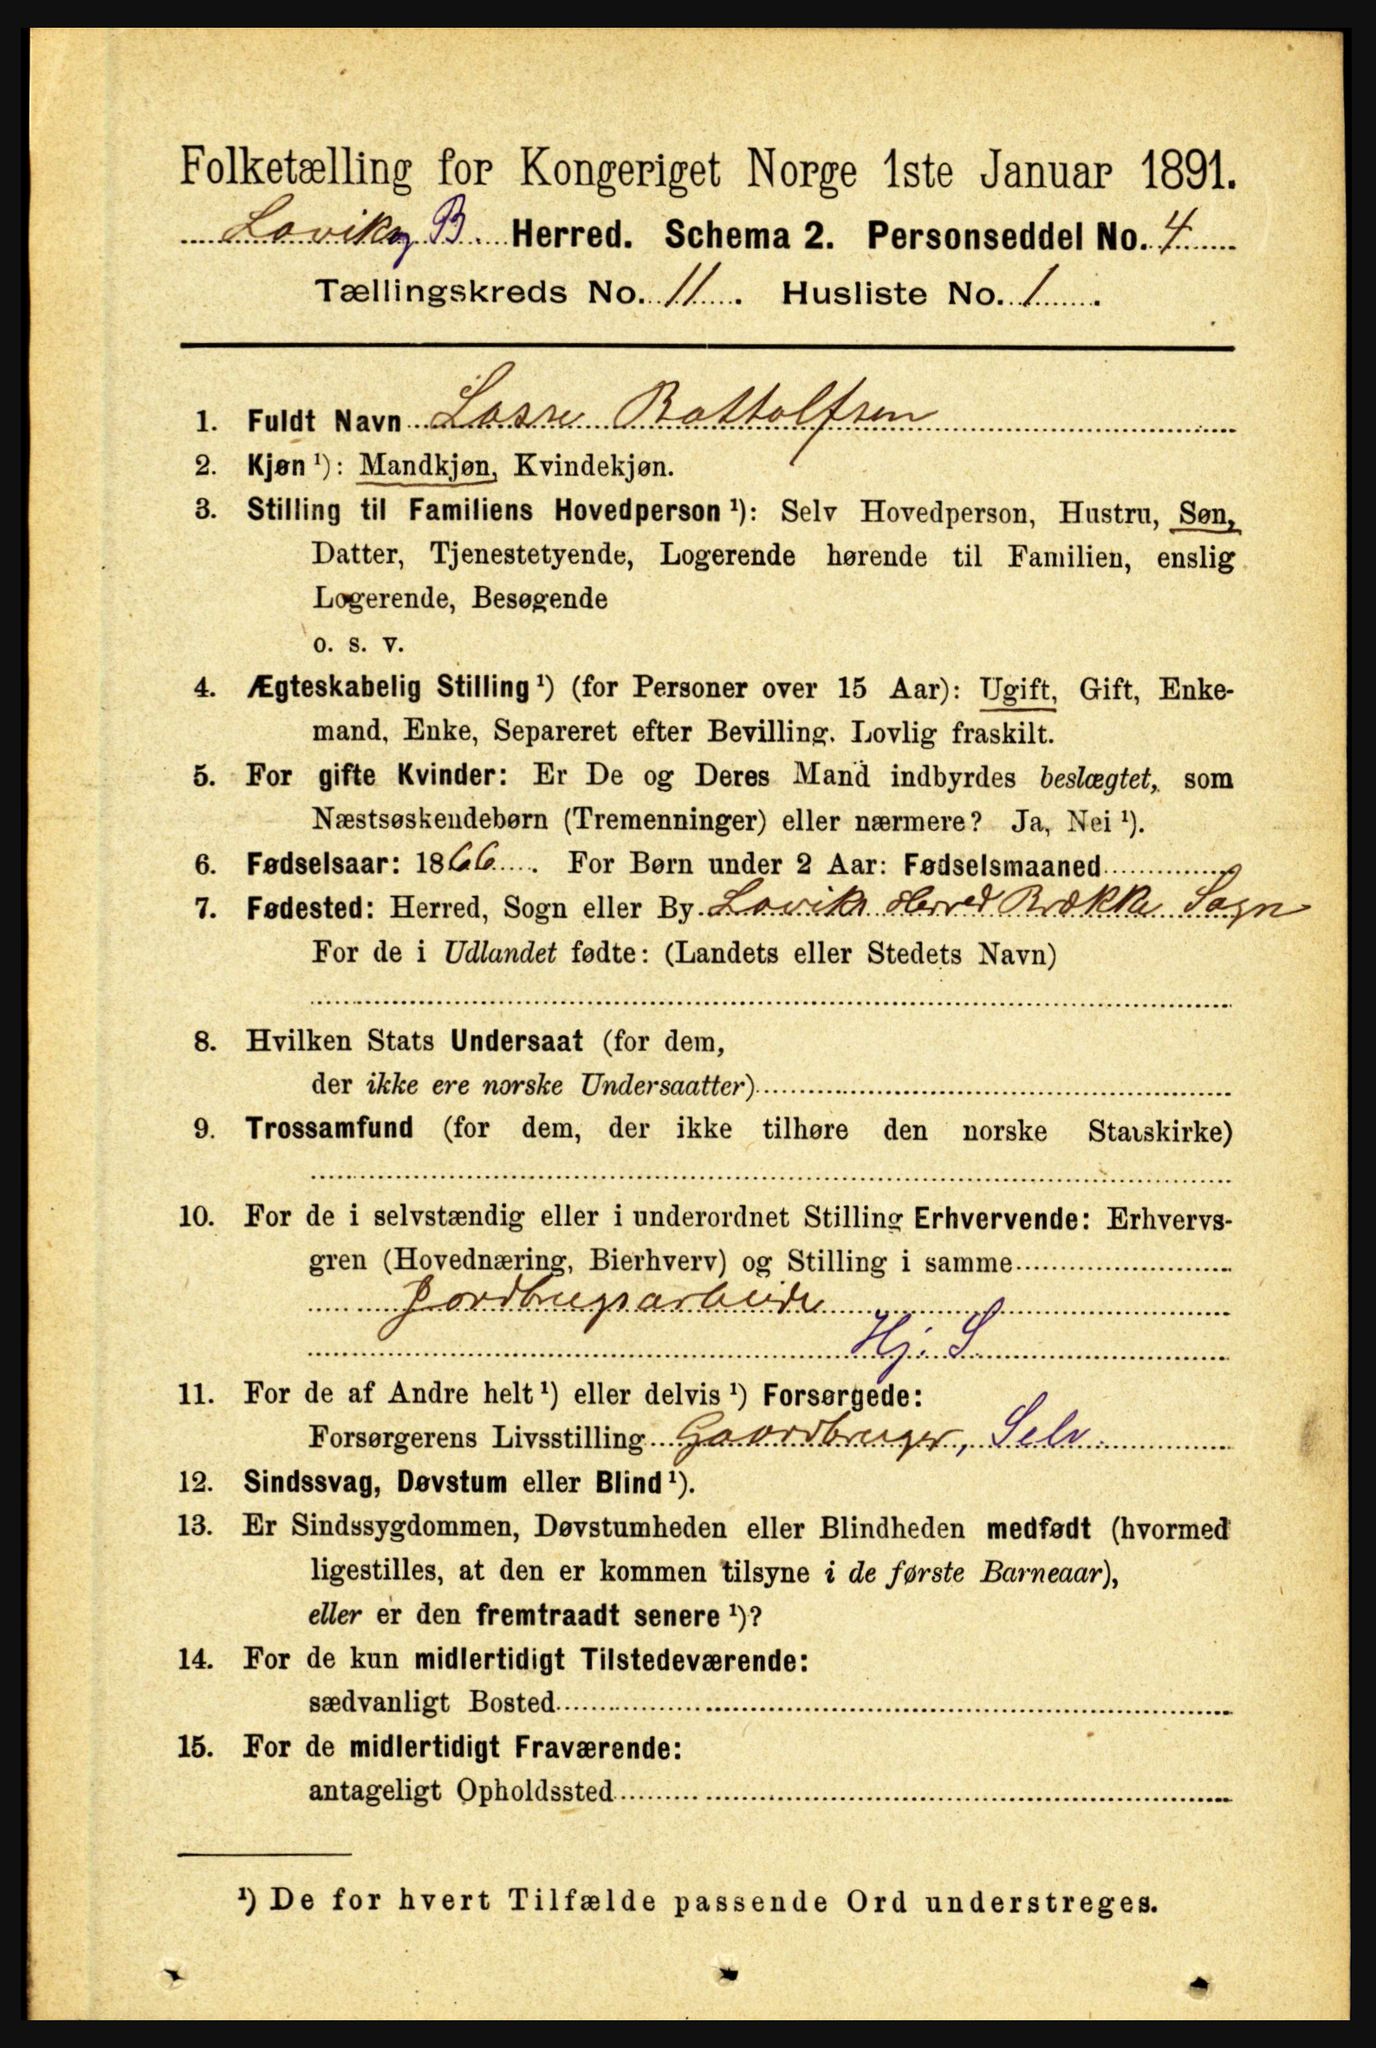 Folketælling for Kongeriget Norge 1ste Januar 1891.
Lavik og B. Herred. Schema 2. Personseddel No. 4
Tællingskreds No. 11. Husliste No. 1.
1. Fuldt Navn Lasse Battolfsen
2. Kjøn ¹): Mandkjøn, Kvindekjøn.
3. Stilling til Familiens Hovedperson ¹): Selv Hovedperson, Hustru, Søn,
Datter, Tjenestetyende, Logerende hørende til Familien, enslig
Logerende, Besøgende
o. s. v.
4. Ægteskabelig Stilling ¹) (for Personer over 15 Aar): Ugift, Gift, Enke-
mand, Enke, Separeret efter Bevilling. Lovlig fraskilt.
5. For gifte Kvinder: Er De og Deres Mand indbyrdes beslægtet, som
Næstsøskendebørn (Tremenninger) eller nærmere? Ja, Nei ¹).
6. Fødselsaar: 1866. For Børn under 2 Aar: Fødselsmaaned
7. Fødested: Herred, Sogn eller By Laviks Herred Brække Sogn
For de i Udlandet fødte: (Landets eller Stedets Navn)
8. Hvilken Stats Undersaat (for dem,
der ikke ere norske Undersaatter)
9. Trossamfund (for dem, der ikke tilhøre den norske Statskirke)
10. For de i selvstændig eller i underordnet Stilling Erhvervende: Erhvervs-
gren (Hovednæring, Bierhverv) og Stilling i samme
Jordbrugsarbeide
Hj. S
11. For de af Andre helt ¹) eller delvis ¹) Forsørgede:
Forsørgerens Livsstilling Gaardbruger, Selv.
12. Sindssvag, Døvstum eller Blind ¹).
13. Er Sindssygdommen, Døvstumheden eller Blindheden medfødt (hvormed
ligestilles, at den er kommen tilsyne i de første Barneaar),
eller er den fremtraadt senere ¹)?
14. For de kun midlertidigt Tilstedeværende:
sædvanligt Bosted
15. For de midlertidigt Fraværende:
antageligt Opholdssted
¹) De for hvert Tilfælde passende Ord understreges.